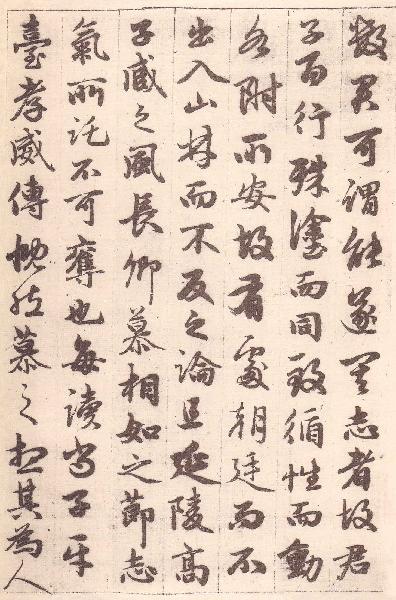 數君可謂能遂其志者故君
子百行殊塗而同致循性而動
各附所安故有處朝廷而不
出入山林而不反之論且延陵高
子臧之風長卿慕相如之節志
氣所託不可奪也每讀尚子平
臺孝威傳慨然慕之想其為人